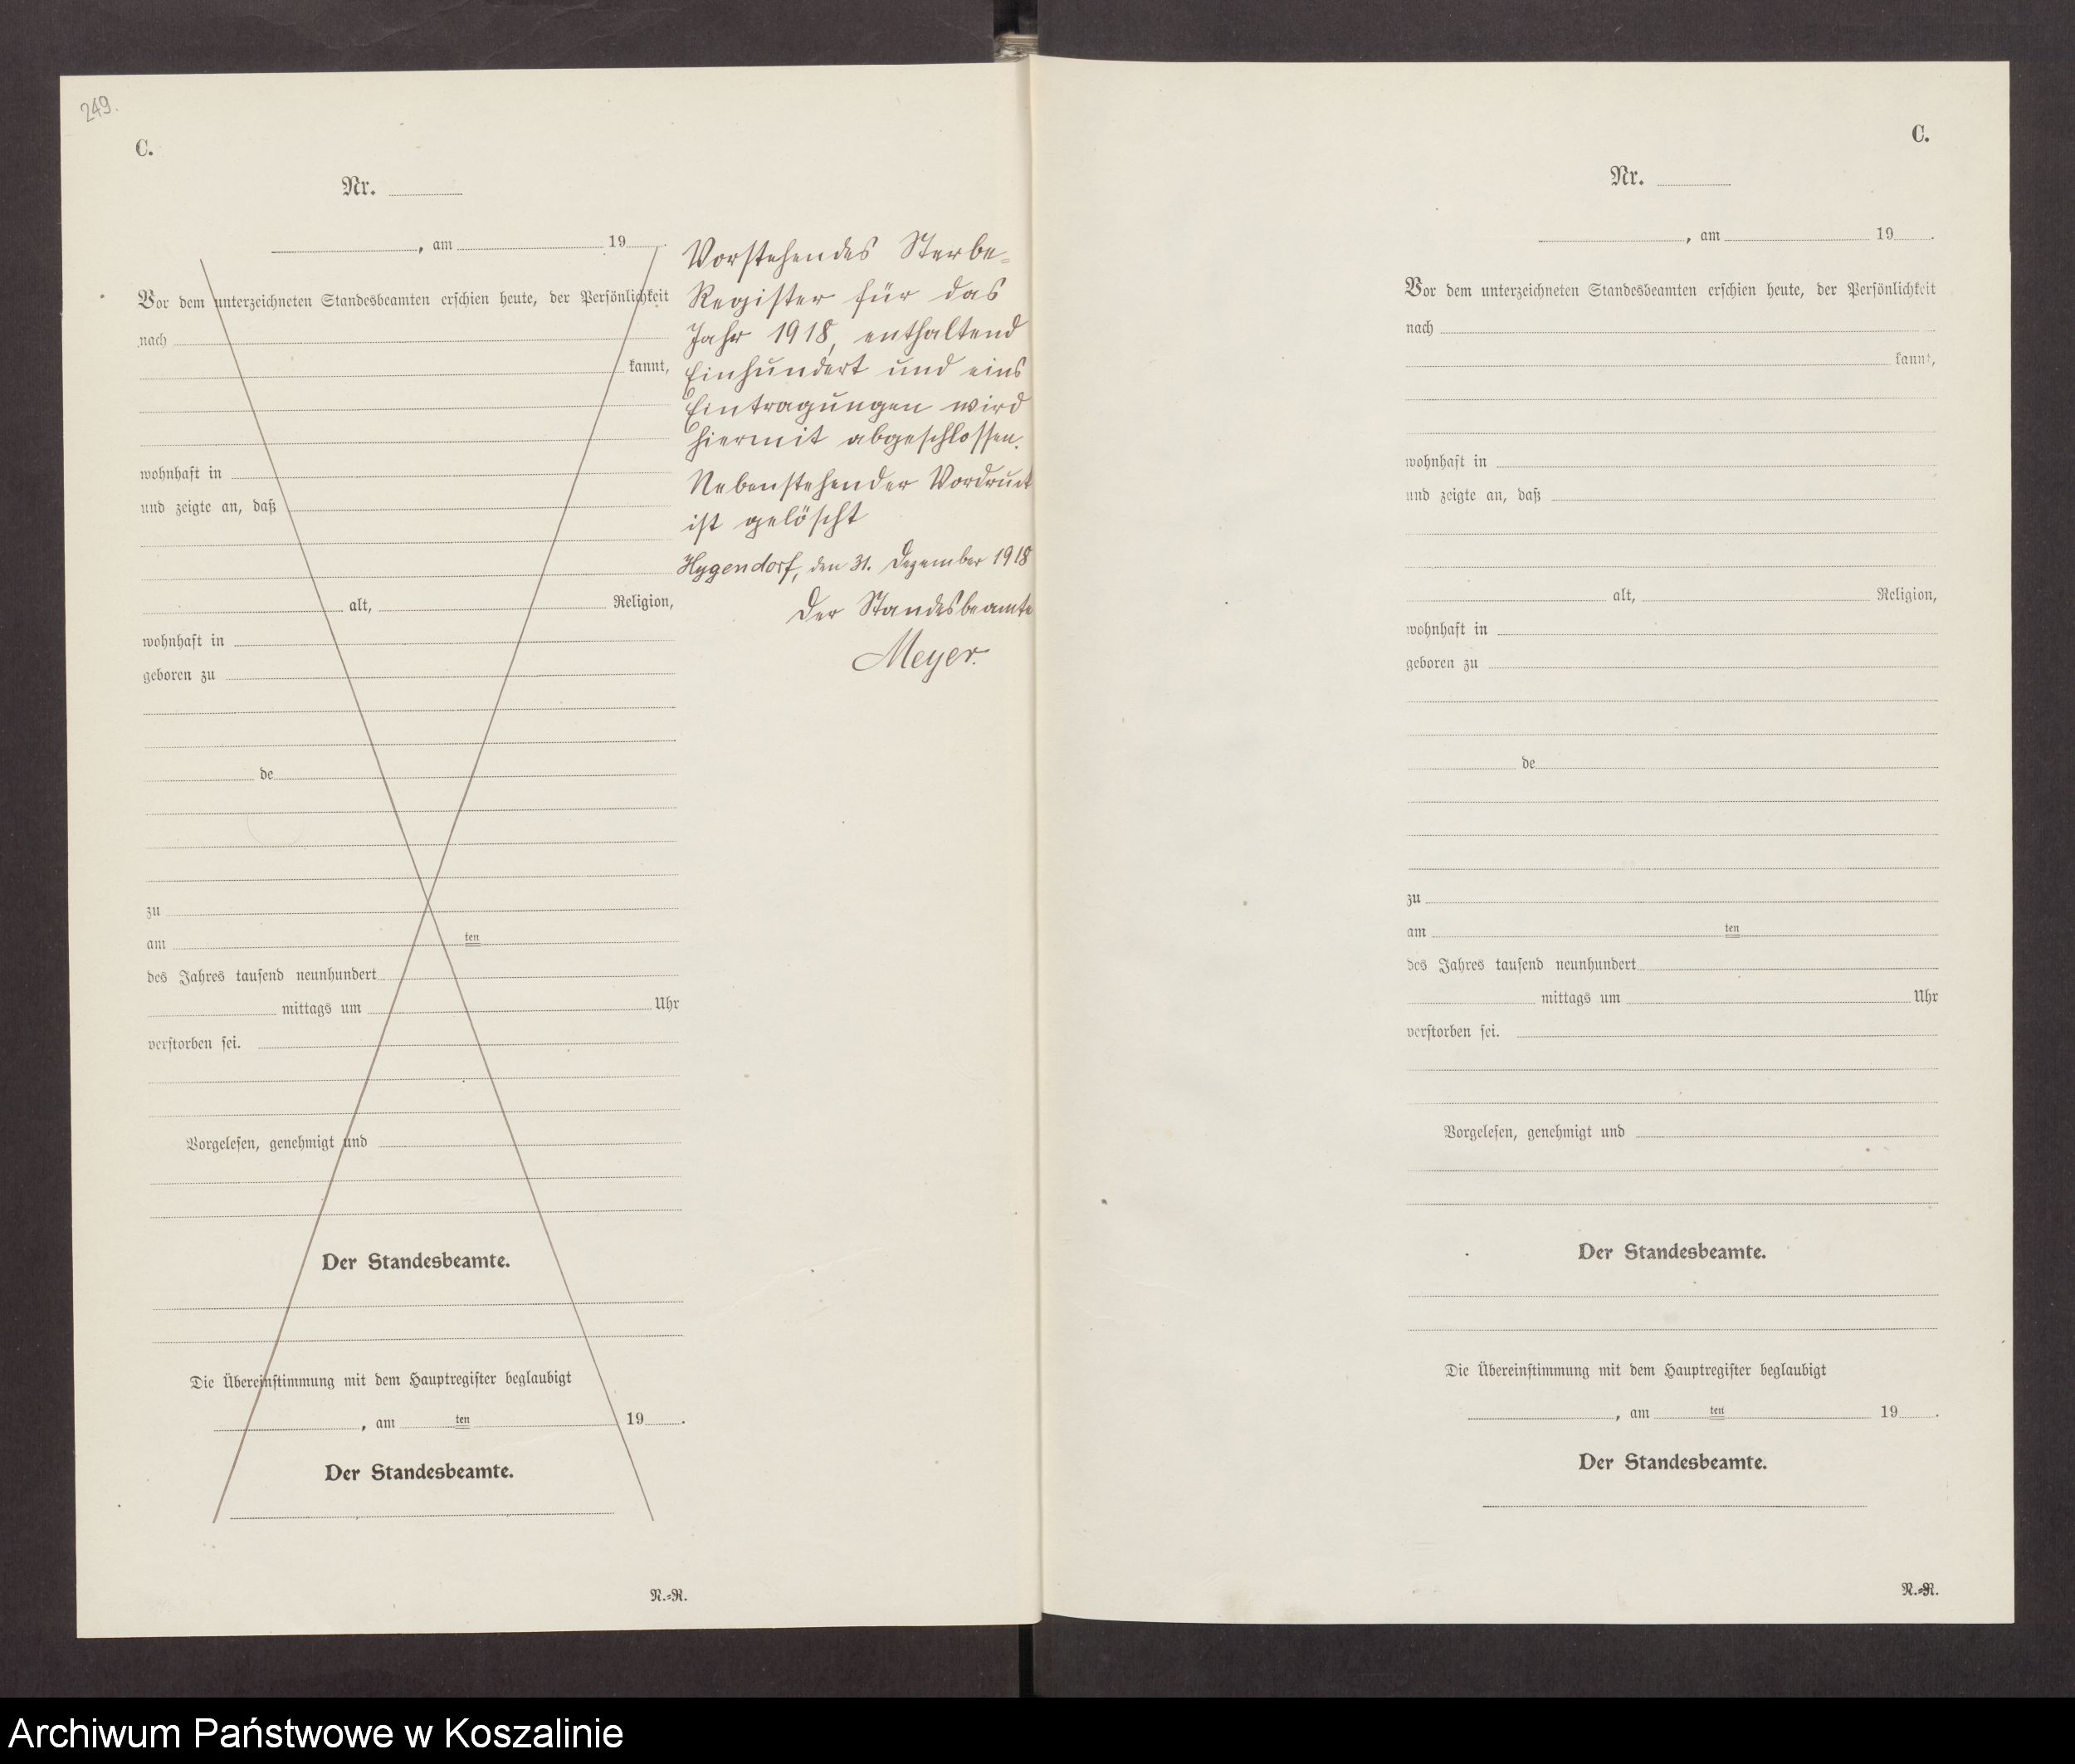 249.
C.
Nr.
, am 19 .
Vor dem unterzeichneten Standesbeamten erschien heute, der Persönlichkeit
nach
kannt,
wohnhaft in
und zeigte an, daß
alt, Religion,
wohnhaft in
geboren zu
de
zu
am ten
des Jahres tausend neunhundert
mittags um Uhr
verstorben sei.
Vorgelesen, genehmigt und
Der Standesbeamte.
Die Übereinstimmung mit dem Hauptregister beglaubigt
, am ten 19 .
Der Standesbeamte.
N.=R.
Vorstehendes Sterbe=
Register für das
Jahr 1918, enthaltend
Einhundert und eins
Eintragungen wird
hiermit abgeschlossen.
Nebenstehender Vordruck
ist gelöscht
Hygendorf, den 31. Dezember 1918
Der Standesbeamte
Meyer.
C.
Nr.
, am 19 .
Vor dem unterzeichneten Standesbeamten erschien heute, der Persönlichkeit
nach
kannt,
wohnhaft in
und zeigte an, daß
alt, Religion,
wohnhaft in
geboren zu
de
zu
am ten
des Jahres tausend neunhundert
mittags um Uhr
verstorben sei.
Vorgelesen, genehmigt und
Der Standesbeamte.
Die Übereinstimmung mit dem Hauptregister beglaubigt
, am ten 19 .
Der Standesbeamte.
N.=R.
Archiwum Państwowe w Koszalinie